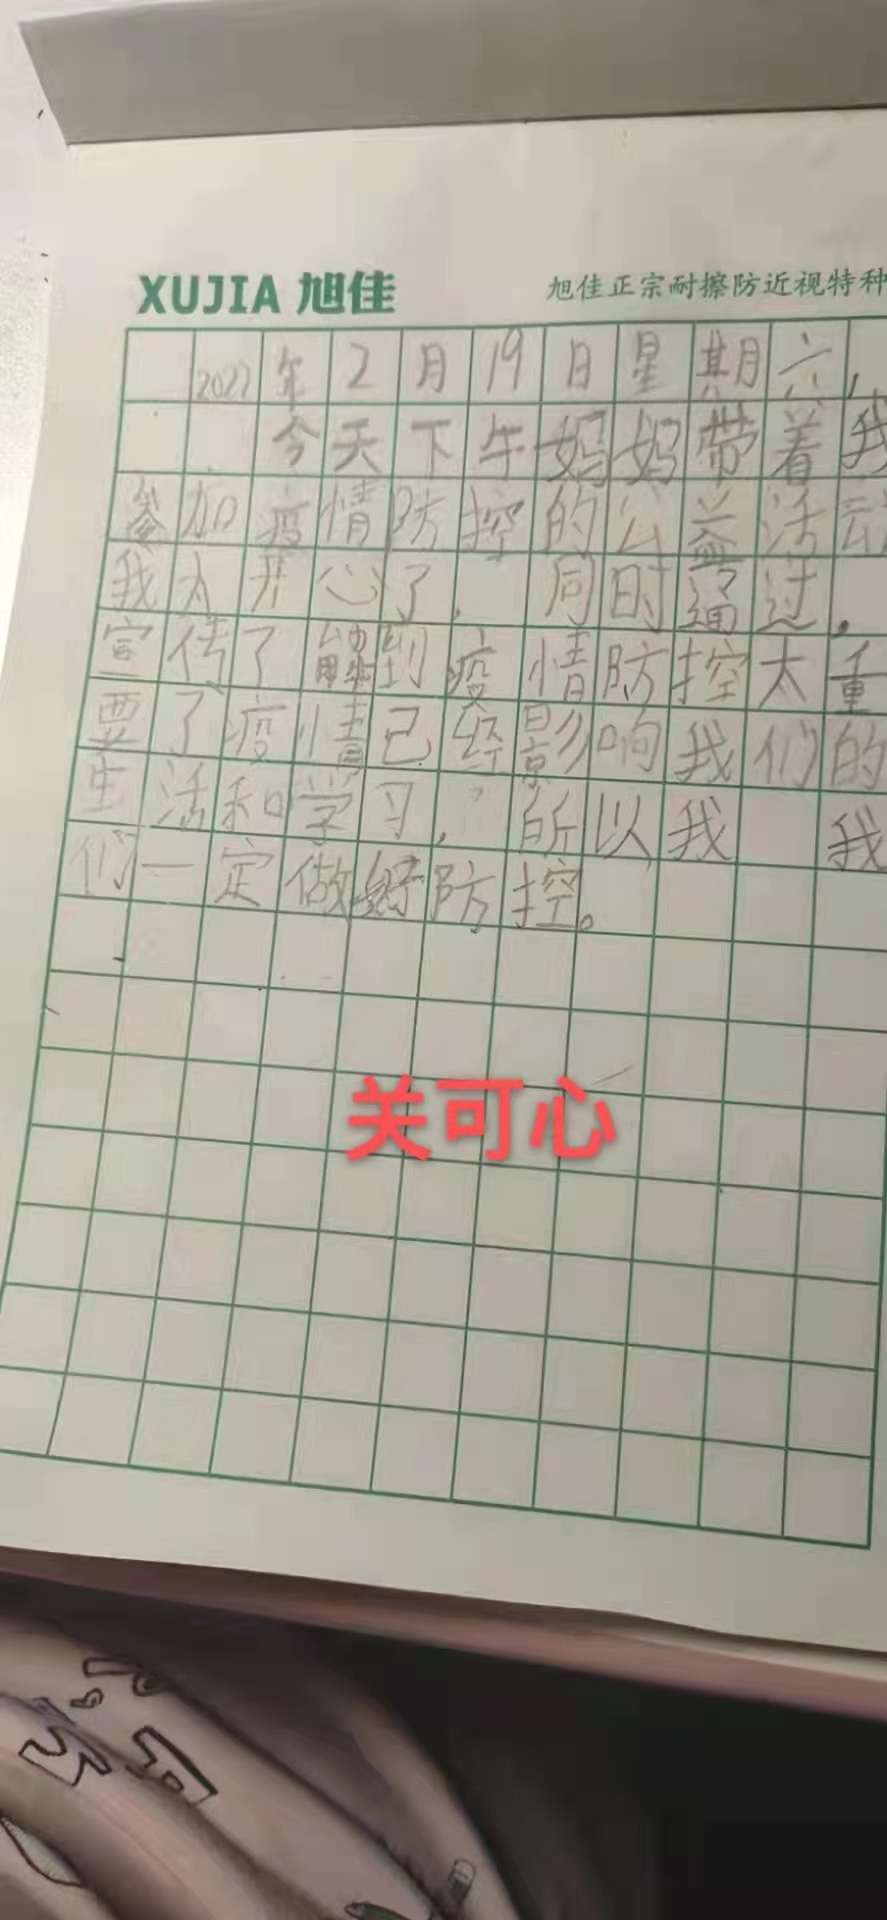 XUJIA 旭佳
旭佳正宗耐擦防近视特种
2022年2月19日星期六,
今天下牛妈妈带着我
参加疫情防控的公益活动
我太开心了,同时通过,
宣传了解到疫情防控太重
要了疫情已经影响我们的
生活和学习,所以我 我
们一定做好防控。
关可心